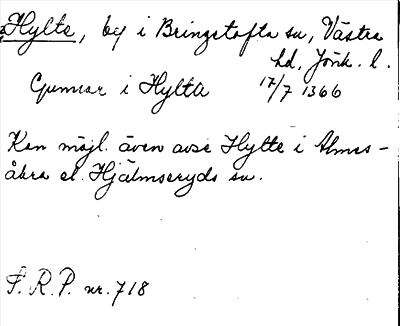 Hylte, by i Bringetofta sn, Västra
hd, Jönk. l.
Gunnar i Hylta 17/7 1366
Kan möjl. även avse Hylte i Almes-
åkra el. Hjälmseryds sn.
S. R. P. nr. 718